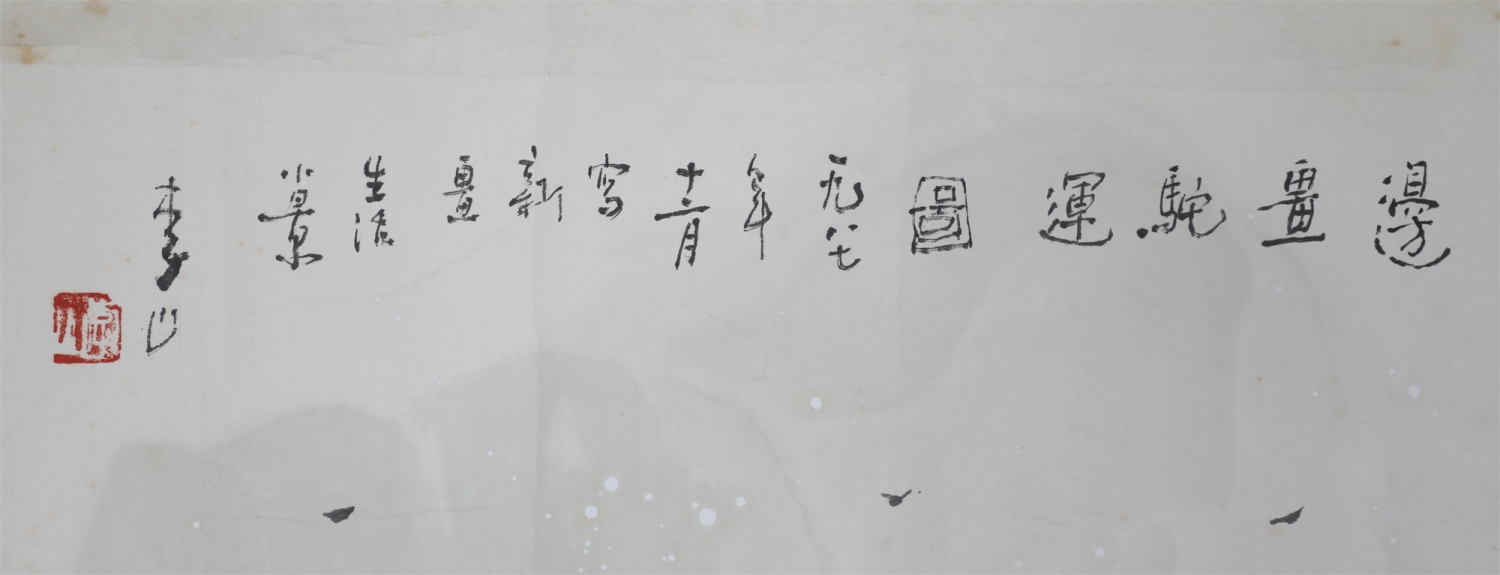 邊畺駝運圖 一九八七年十二月寫新畺生活小景 李山